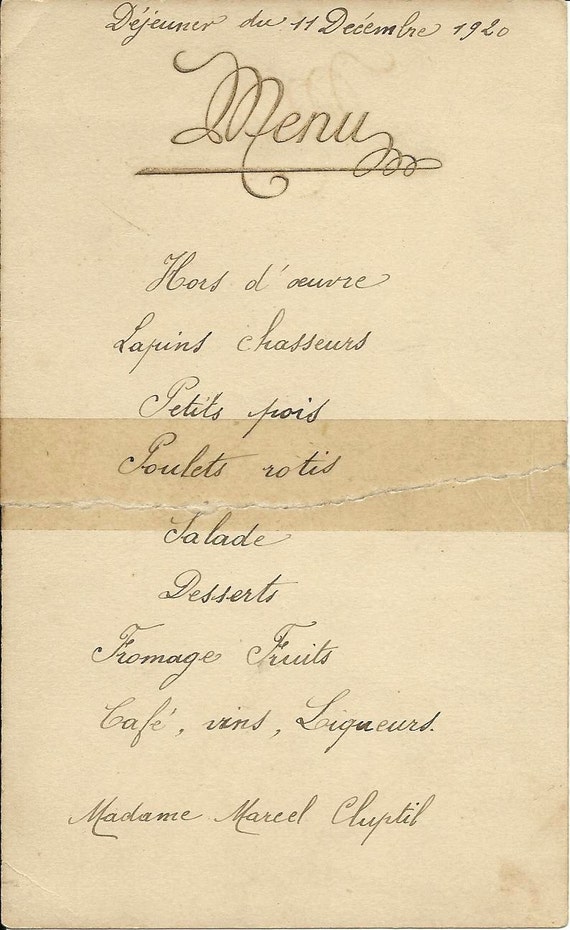 Déjeuner du 11 Décembre 1920
Menu
Hors d'œuvre
Lapins chasseurs
Petits pois
Poulets rotis
Salade
Desserts
Fromage Fruits
Café, vins, Liqueurs.
Madame Marcel